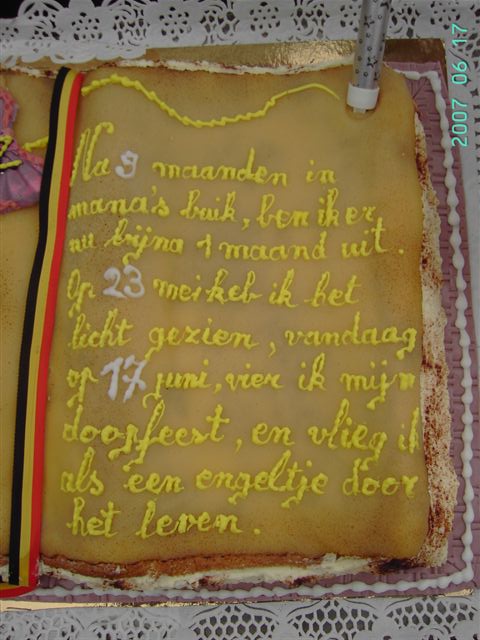 Na 9 maanden in
mama's buik, ben ik er
nu bijna 1 maand uit.
Op 23 mei heb ik het
licht gezien, vandaag
op 17 juni, vier ik mijn
doopfeest, en vlieg ik
als een engeltje door
het leven.
2007 06 17